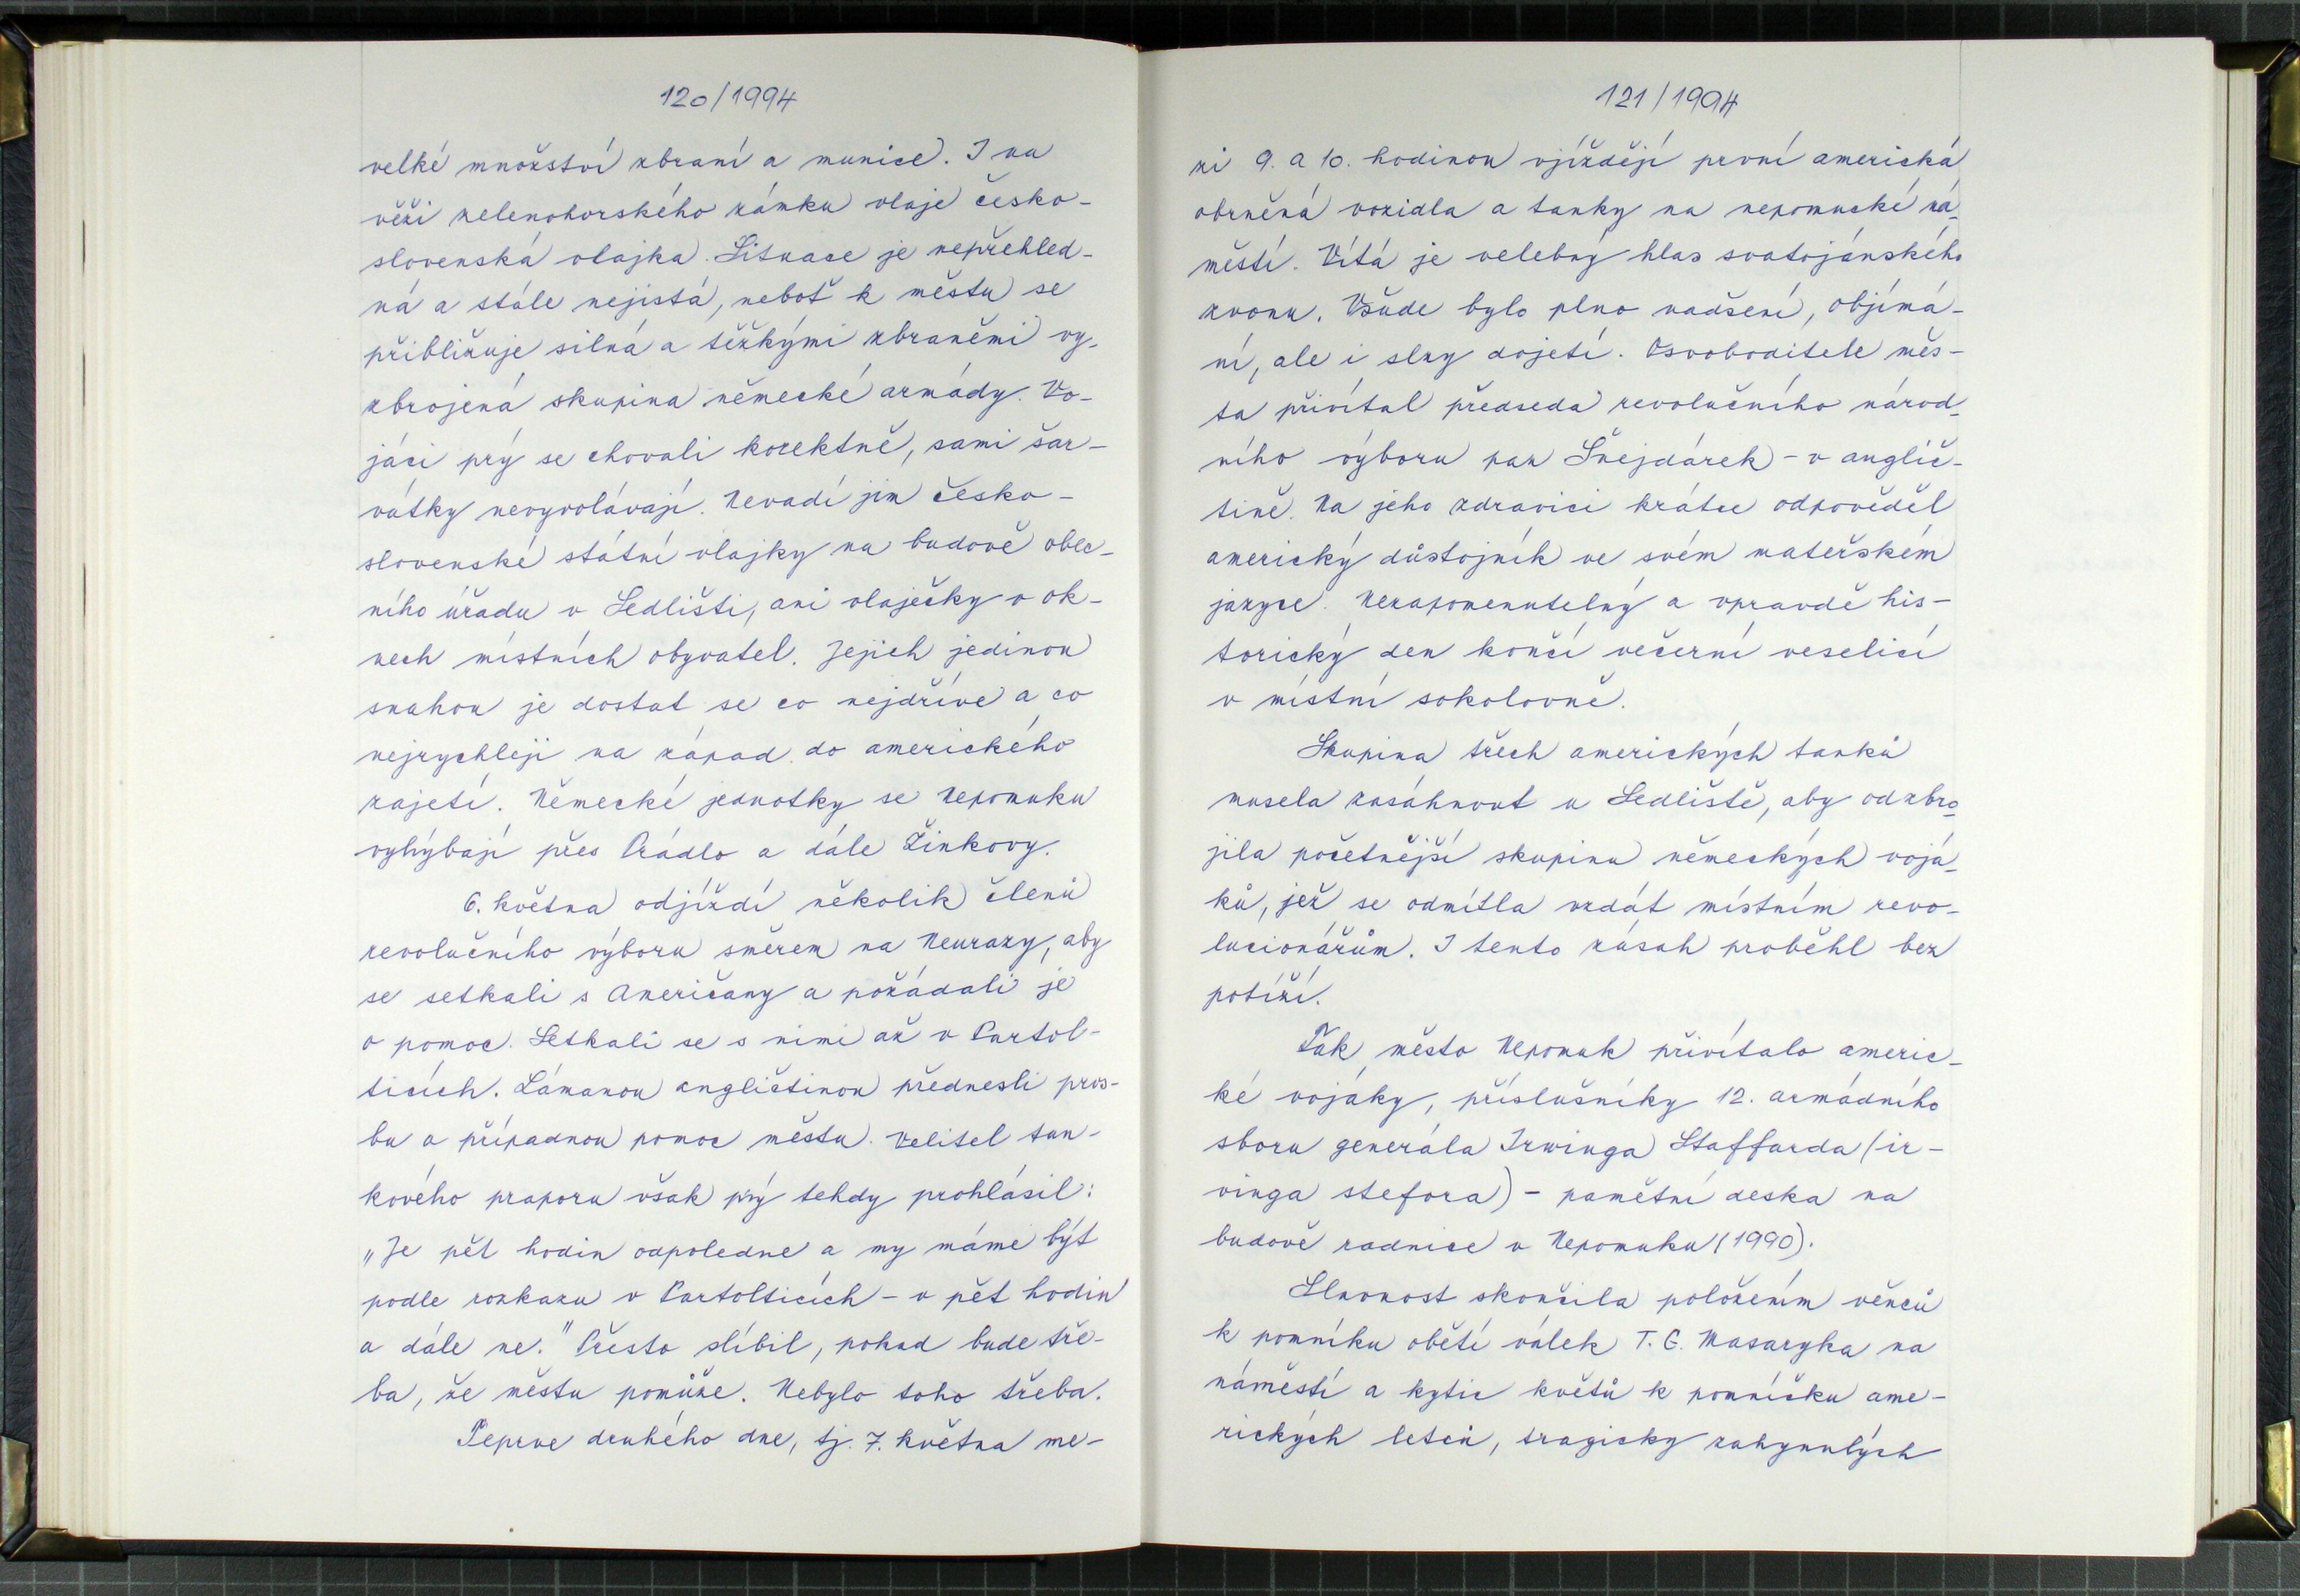 120/1994
velké množství zbraní a munice. I na
věži zelenohorského zámku vlaje česko-
slovenská vlajka. Situace je nepřehled-
ná a stále nejistá, neboť k městu se
přibližuje silná a těžkými zbraněmi vy-
zbrojená skupina německé armády. Vo-
jáci prý se chovali korektně, sami šar-
vátky nevyvolávají. Nevadí jim česko-
slovenské státní vlajky na budově obec-
ního úřadu v Sedlišti, ani vlaječky v ok-
nech místních obyvatel. Jejich jedinou
snahou je dostat se co nejdříve a co
nejrychleji na západ do amerického
zajetí. Německé jednotky se Nepomuku
vyhýbají přes Prádlo a dále Žinkovy.
6. května odjíždí několik členů
revolučního výboru směrem na Neurazy, aby
se setkali s Američany a požádali je
o pomoc. Setkali se s nimi až v Partol-
ticích. Lámanou angličtinou přednesli pros-
bu o případnou pomoc městu. Velitel tan-
kového praporu však prý tehdy prohlásil:
„Je pět hodin odpoledne a my máme být
podle rozkazu v Partolticích - v pět hodin
a dále ne." Přesto slíbil, pokud bude tře-
ba, že městu pomůže. Nebylo toho třeba.
Teprve druhého dne, tj. 7. května me-
121/1994
zi 9. a 10. hodinou vjíždějí první americká
obrněná vozidla a tanky na nepomucké ná-
městí. Vítá je velebný hlas svatojánského
zvonu. Všude bylo plno nadšení, objímá-
ní, ale i slzy dojetí. Osvoboditele měs-
ta přivítal předseda revolučního národ-
ního výboru pan Šnejdárek - v anglič-
tině. Na jeho zdravici krátce odpověděl
americký důstojník ve svém mateřském
jazyce. Nezapomenutelný a vpravdě his-
torický den končí večerní veselicí
v místní sokolovně.
Skupina třech amerických tanků
musela zasáhnout u Sedliště, aby odzbro-
jila početnější skupinu německých vojá-
ků, jež se odmítla vzdát místním revo-
lucionářům. I tento zásah proběhl bez
potíží.
Tak město Nepomuk přivítalo americ-
ké vojáky, příslušníky 12. armádního
sboru generála Irwinga Staffarda (ir-
vinga stefora) - pamětní deska na
budově radnice v Nepomuku (1990).
Slavnost skončila položením věnců
k pomníku obětí válek T. G. Masaryka na
náměstí a kytic květů k pomníčku ame-
rických letců, tragicky zahynulých